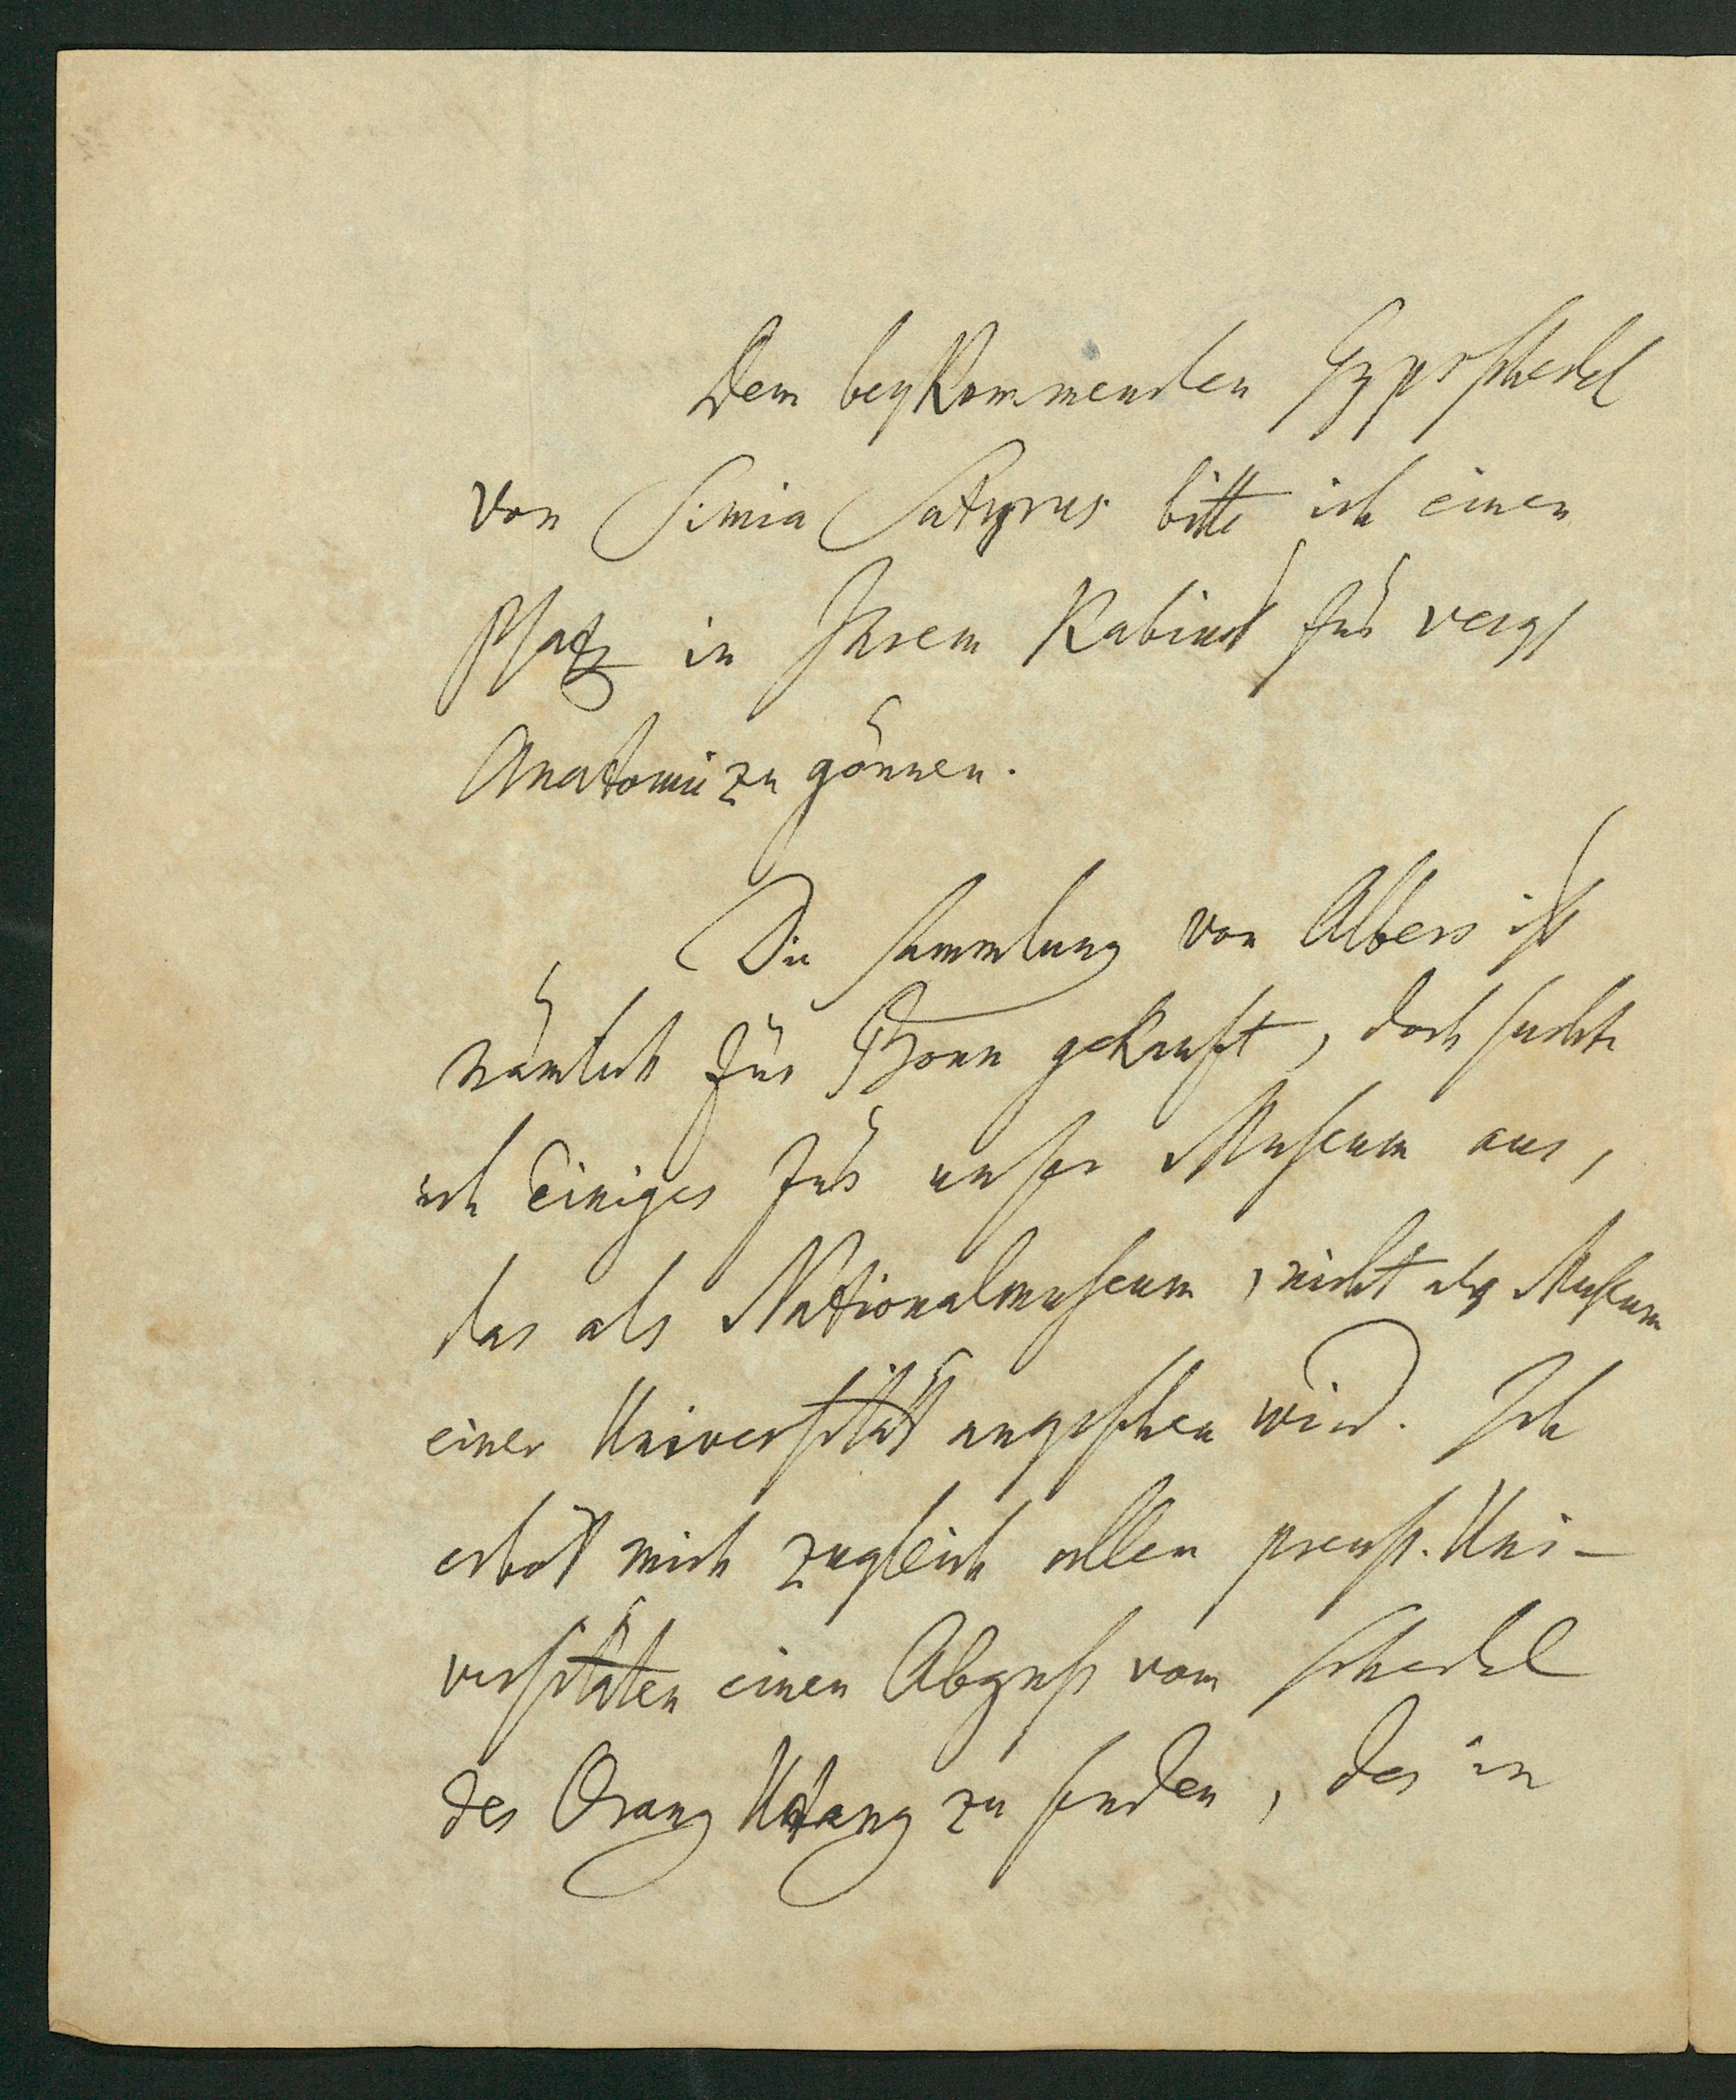 Dem beykommenden Gypsschedel
von Simia Satyrus bitte ich einen
Platz in Ihrem Kabinet für vergl
Anatomie zu gönnen.
Die Sammlung von Albers ist
nämlich für Bonn gekauft, doch suchte
ich Einiges für unser Museum aus,
das als Nationalmuseum, nicht als Museum
einer Universität angesehen wird. Ich
erbot mich zugleich allen preuß. Uni-
versitäten einen Abguß vom Schedel
des Orang Utang zu senden, der in